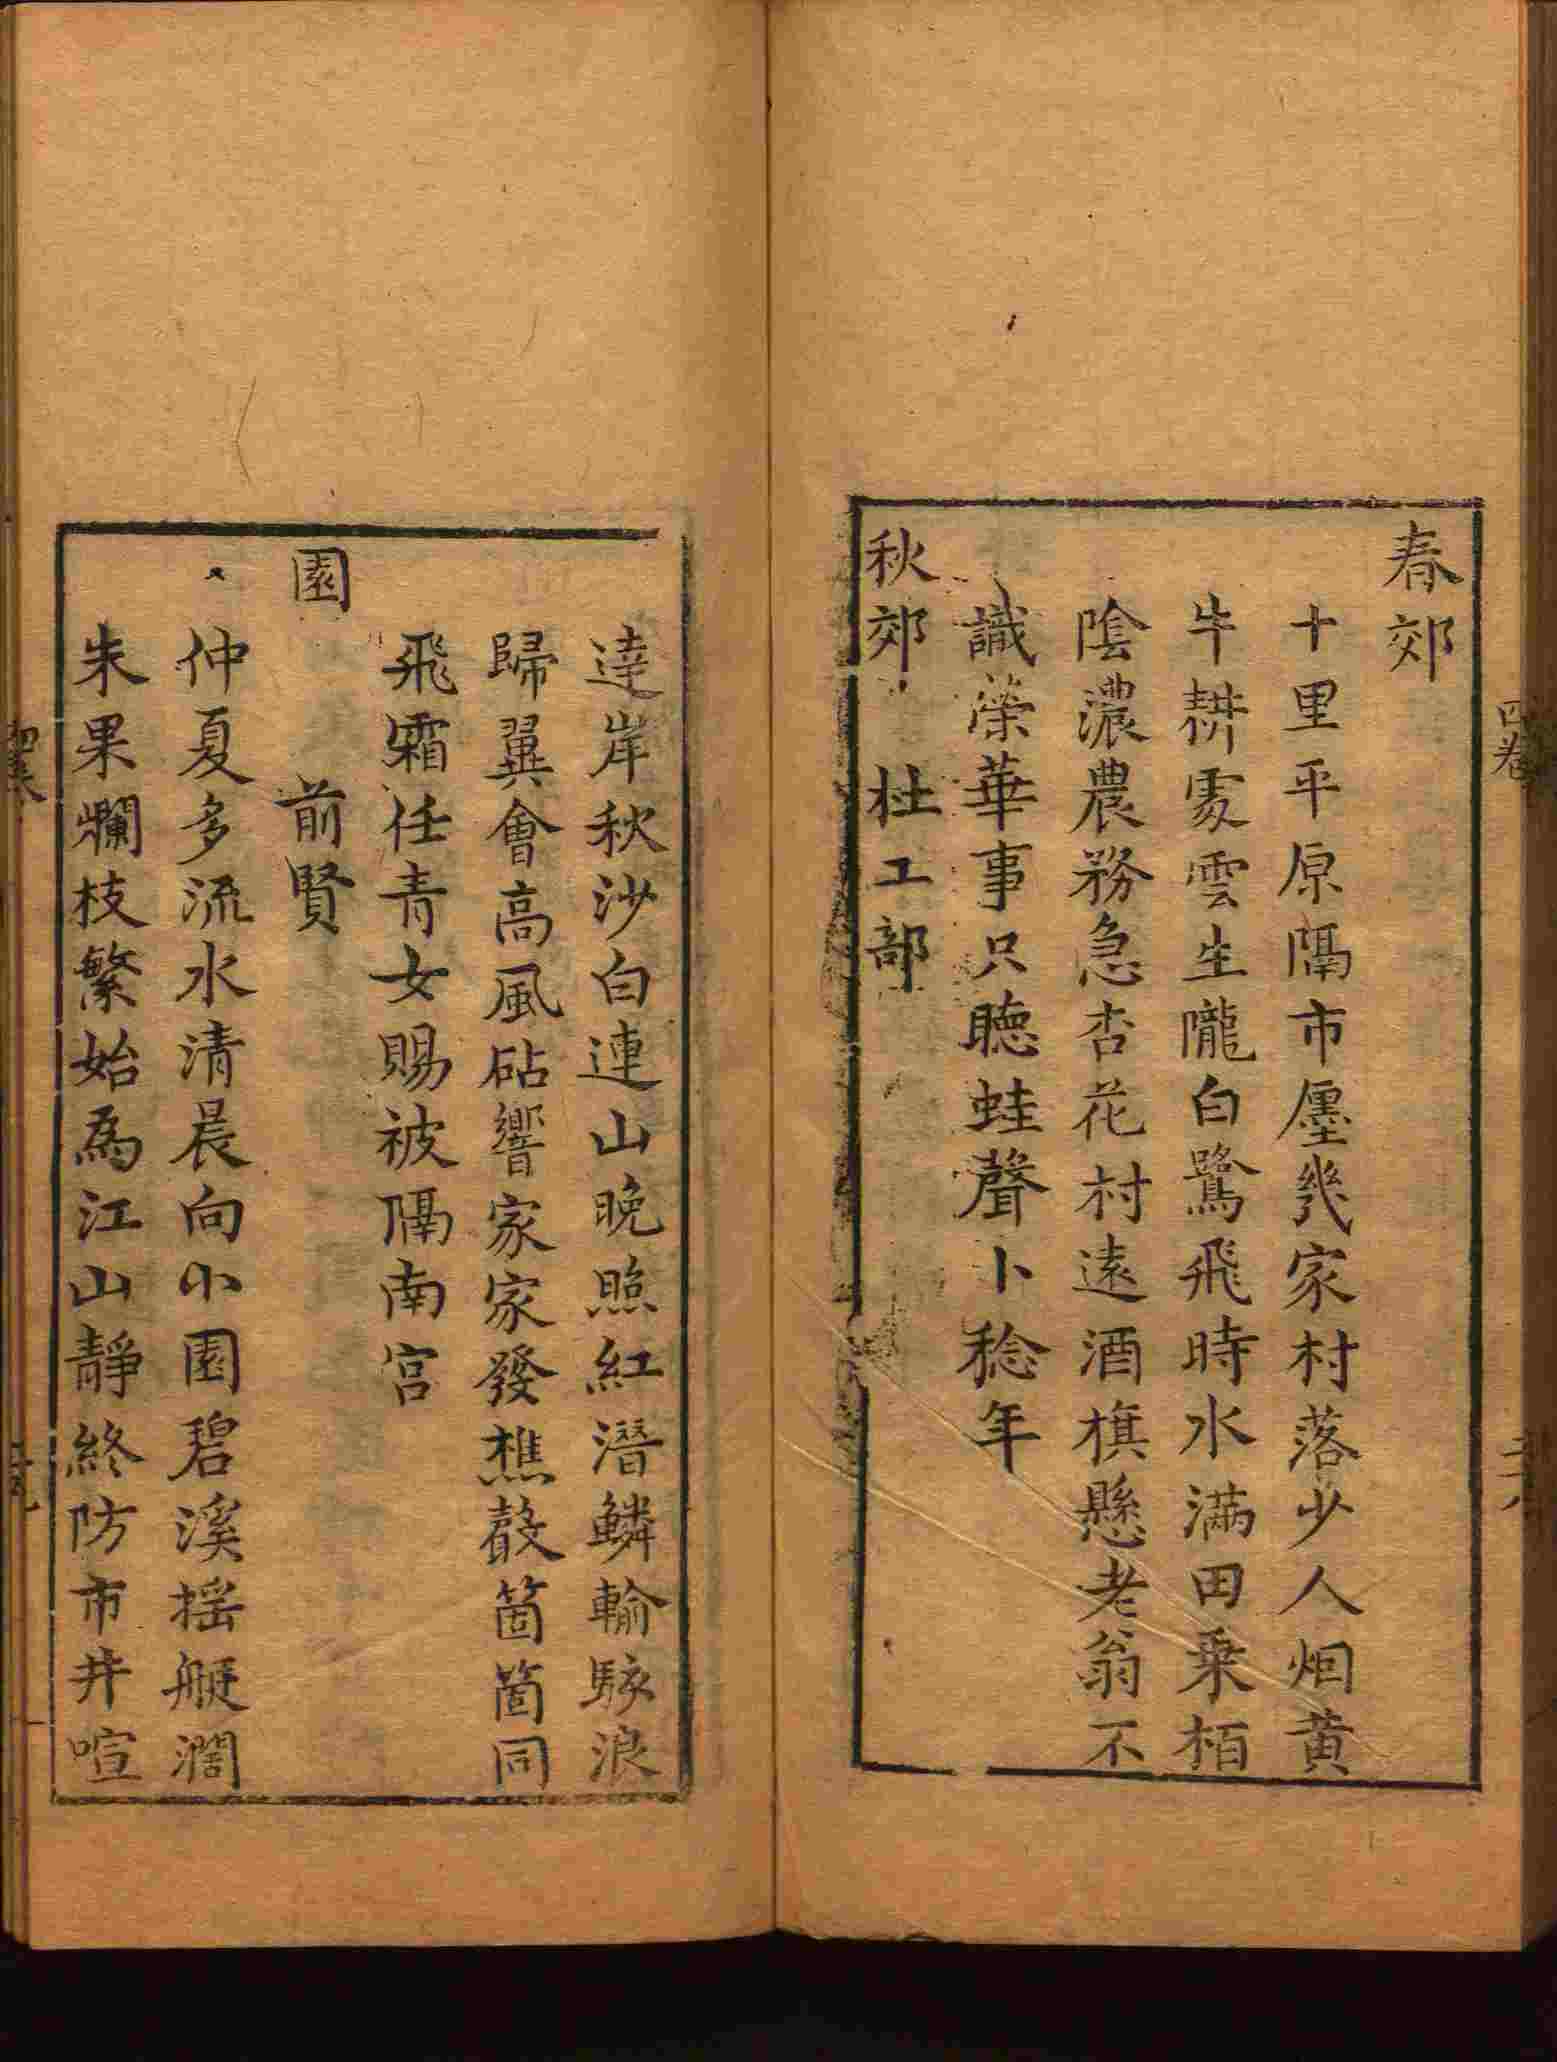 春郊
十里平原隔市廛幾家村落少人烟黄
牛耕處雲生隴白鷺飛時水滿田乗栢
陰濃農務急杏花村遠酒旗懸老翁不
識榮華事只聴蛙聲卜稔年
秋郊 杜工部
逹岸秋沙白連山晚照紅潛鱗輸駭浪
歸翼會高風砧響家家發樵聲箇箇同
飛霜任青女賜被隔南宮
園 前賢
仲夏多流水清晨向小園碧溪揺艇濶
朱果爛枝繁始為江山靜終防市井喧
四卷